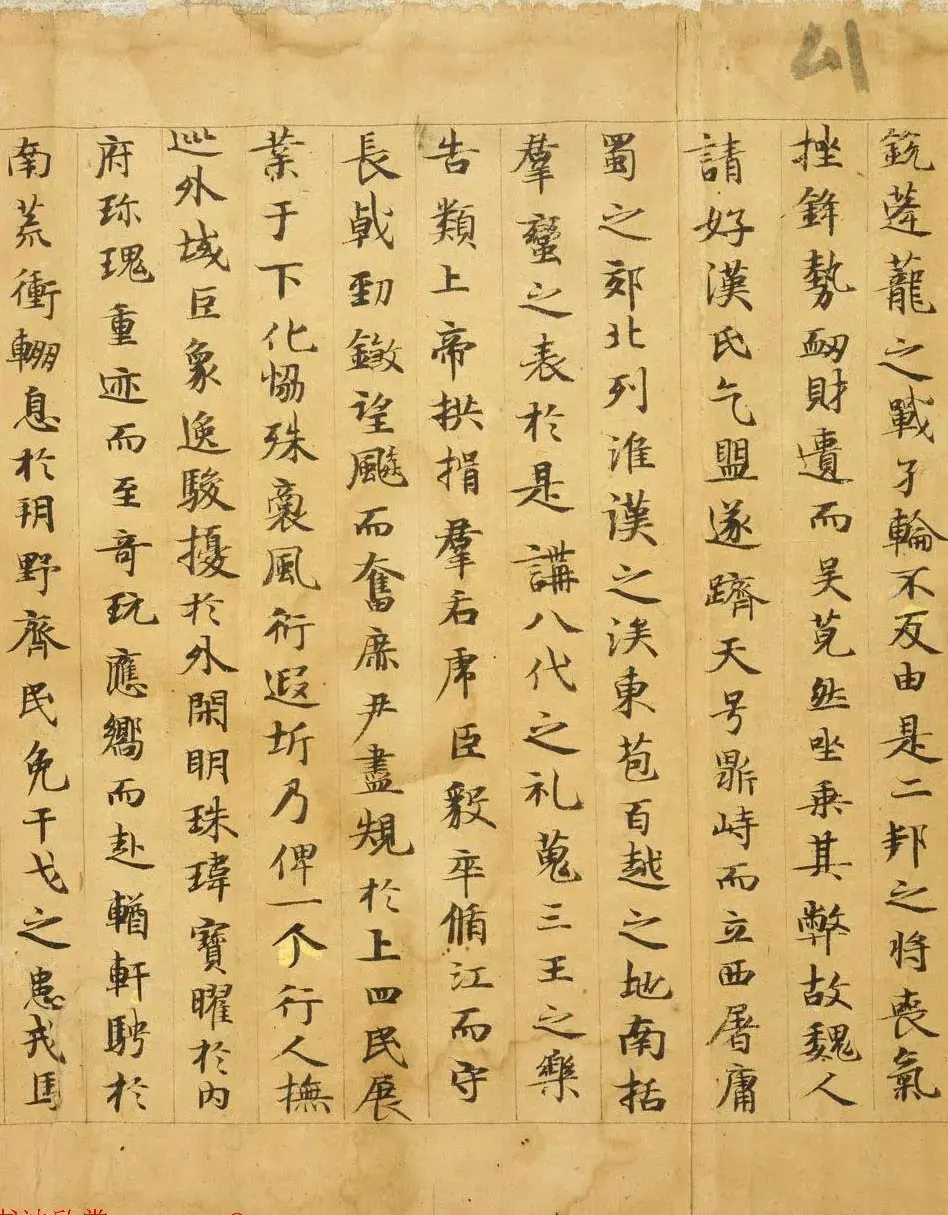 銳蓬蘢之戰孑輪不反由是二邦之將喪氣
挫鋒勢衄財遺而吴莧然坐乘其弊故魏人
請好漢氏乞盟遂躋天号鼎峙而立西屠庸
蜀之郊北列淮漢之涘東苞百越之地南括
羣蠻之表於是講八代之礼蒐三王之樂
告類上帝拱揖羣后虎臣毅卒脩江而守
長戟勁鎩望飈而奮庶尹盡規於上四民展
業于下化恊殊裔風衍遐圻乃俾一个行人撫
巡外域巨象逸駿擾於外閑明珠瑋寶曜於内
府珎瑰重迹而至奇玩應嚮而赴輶軒騁於
南荒衝輣息於朔野齊民免干戈之患戎馬